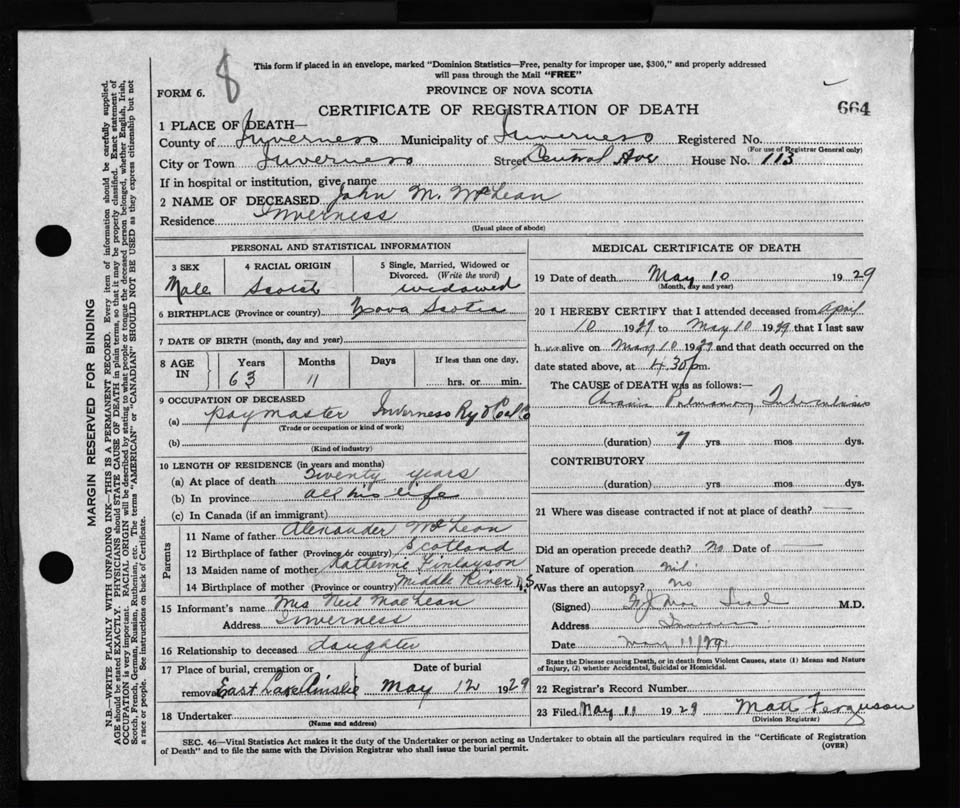 8
This form if placed in an envelope, marked "Dominion Statistics—Free, penalty for improper use, $300," and properly addressed
will pass through the Mail "FREE"
FORM 6.
PROVINCE OF NOVA SCOTIA
CERTIFICATE OF REGISTRATION OF DEATH
664
1 PLACE OF DEATH—
County of Inverness Municipality of Inverness Registered No.
(For use of Registrar General only)
City or Town Inverness Street Central Ave House No. 113
If in hospital or institution, give name
2 NAME OF DECEASED John M. McLean
Residence Inverness
(Usual place of abode)
PERSONAL AND STATISTICAL INFORMATION
3 SEX 4 RACIAL ORIGIN 5 Single, Married, Widowed or
Divorced. (Write the word)
Male Scotch widowed
6 BIRTHPLACE (Province or country) Nova Scotia
7 DATE OF BIRTH (month, day and year)
8 AGE IN Years Months Days If less than one day,
63 11 hrs. or min.
9 OCCUPATION OF DECEASED
(a) paymaster Inverness Ry & Coal Co
(Trade or occupation or kind of work)
(b)
(Kind of industry)
10 LENGTH OF RESIDENCE (in years and months)
(a) At place of death Twenty years
(b) In province all his life
(c) In Canada (if an immigrant)
Parents
11 Name of father Alexander McLean
12 Birthplace of father (Province or country) Scotland
13 Maiden name of mother Katherine Finlayson
14 Birthplace of mother (Province or country) Middle River N.S.
15 Informant's name Mrs Neil MacLean
Address Inverness
16 Relationship to deceased daughter
17 Place of burial, cremation or Date of burial
removal East Lake Ainslie May 12 1929
18 Undertaker
(Name and address)
MEDICAL CERTIFICATE OF DEATH
19 Date of death May 10 1929
(Month, day and year)
20 I HEREBY CERTIFY that I attended deceased from April
10 1929 to May 10 1929 that I last saw
h alive on May 10 1929 and that death occurred on the
date stated above, at 4.30 p m.
The CAUSE OF DEATH was as follows:—
Chronic Pulmonary Tuberculosis
(duration) 7 yrs. mos. dys.
CONTRIBUTORY
(duration) yrs. mos. dys.
21 Where was disease contracted if not at place of death? —
Did an operation precede death? No Date of —
Nature of operation nil.
Was there an autopsy? no
(Signed) M.D.
Address Inverness
Date May 11/29
State the Disease causing Death, or in death from Violent Causes, state (1) Means and Nature
of Injury, (2) whether Accidental, Suicidal or Homicidal.
22 Registrar's Record Number
23 Filed May 11 1929 Matt Ferguson
(Division Registrar)
SEC. 46—Vital Statistics Act makes it the duty of the Undertaker or person acting as Undertaker to obtain all the particulars required in the "Certificate of Registration
of Death" and to file the same with the Division Registrar who shall issue the burial permit.
(OVER)
MARGIN RESERVED FOR BINDING
N.B.—WRITE PLAINLY WITH UNFADING INK—THIS IS A PERMANENT RECORD. Every item of information should be carefully supplied.
AGE should be stated EXACTLY. PHYSICIANS should STATE CAUSE OF DEATH in plain terms, so that it may be properly classified. Exact statement of
OCCUPATION is very important. RACIAL ORIGIN will be described by stating to what people or tongue the deceased person belonged, whether English, Irish,
Scotch, French, German, Russian, Ruthenian, etc. The terms "AMERICAN" or "CANADIAN" SHOULD NOT BE USED as they express citizenship but not
a race or people. See instructions on back of Certificate.